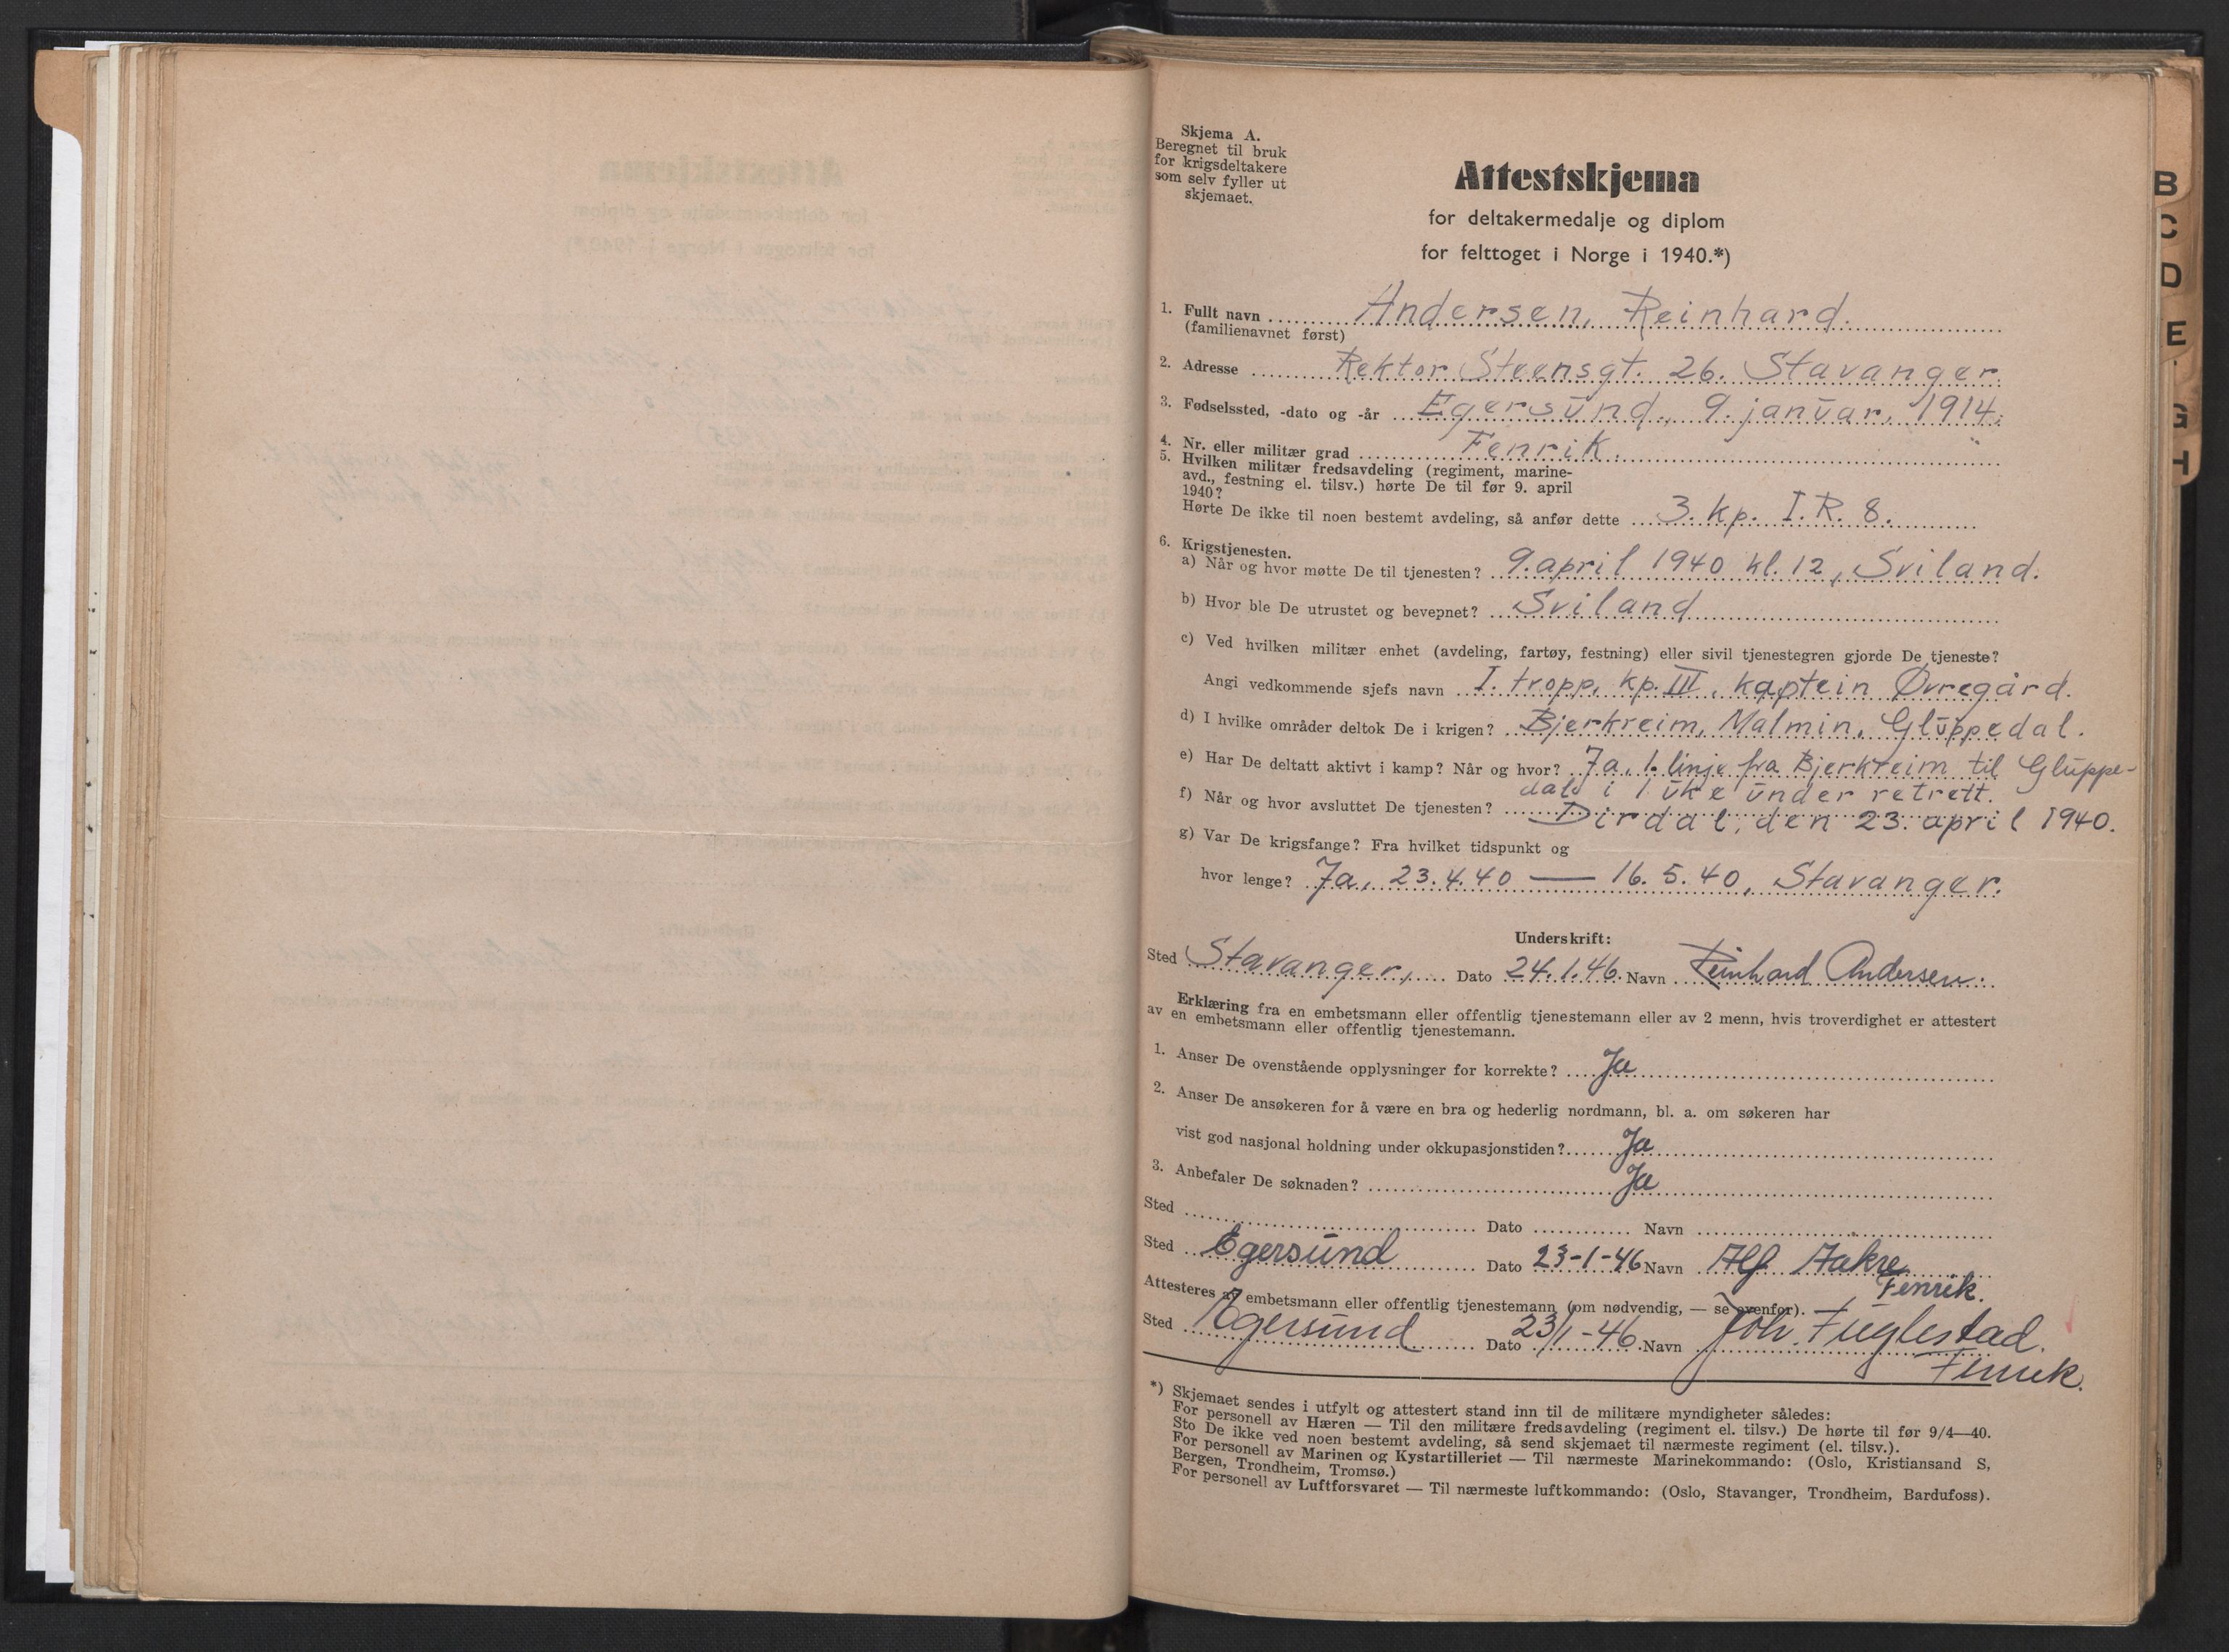 Skjema A.
Beregnet til bruk
for krigsdeltakere
som selv fyller ut
skjemaet.
Attestskjema
for deltakermedalje og diplom
for felttoget i Norge i 1940.*)
1. Fullt navn Andersen, Reinhard.
(familienavnet først)
2. Adresse Rektor Steensgt. 26. Stavanger.
3. Fødselssted, -dato og -år Egersund, 9. januar, 1914.
4. Nr. eller militær grad Fenrik.
5. Hvilken militær fredsavdeling (regiment, marine-
avd., festning el. tilsv.) hørte De til før 9. april
1940?
Hørte De ikke til noen bestemt avdeling, så anfør dette 3. kp. I.R. 8.
6. Krigstjenesten.
a) Når og hvor møtte De til tjenesten? 9. april 1940 kl. 12, Sviland.
b) Hvor ble De utrustet og bevepnet? Sviland
c) Ved hvilken militær enhet (avdeling, fartøy, festning) eller sivil tjenestegren gjorde De tjeneste?
Angi vedkommende sjefs navn I. tropp, kp. III, kaptein Øvregård.
d) I hvilke områder deltok De i krigen? Bjerkreim, Malmin, Gluppedal.
e) Har De deltatt aktivt i kamp? Når og hvor? Ja, 1. linje fra Bjerkreim til Gluppe-
dal i 1 uke under retrett.
f) Når og hvor avsluttet De tjenesten? Dirdal, den 23. april 1940.
g) Var De krigsfange? Fra hvilket tidspunkt og
hvor lenge? Ja, 23.4.40 — 16.5.40, Stavanger.
Underskrift:
Sted Stavanger, Dato 24.1.46. Navn Reinhard Andersen.
Erklæring fra en embetsmann eller offentlig tjenestemann eller av 2 menn, hvis troverdighet er attestert
av en embetsmann eller offentlig tjenestemann.
1. Anser De ovenstående opplysninger for korrekte? Ja
2. Anser De ansøkeren for å være en bra og hederlig nordmann, bl. a. om søkeren har
vist god nasjonal holdning under okkupasjonstiden? Ja
3. Anbefaler De søknaden? Ja
Sted Dato Navn
Sted Egersund Dato 23-1-46 Navn Alf Aakre
Fenrik.
Attesteres av embetsmann eller offentlig tjenestemann (om nødvendig, — se ovenfor).
Sted Egersund Dato 23/1-46 Navn Joh. Fuglestad.
Fenrik.
*) Skjemaet sendes i utfylt og attestert stand inn til de militære myndigheter således:
For personell av Hæren — Til den militære fredsavdeling (regiment el. tilsv.) De hørte til før 9/4—40.
Sto De ikke ved noen bestemt avdeling, så send skjemaet til nærmeste regiment (el. tilsv.).
For personell av Marinen og Kystartilleriet — Til nærmeste Marinekommando: (Oslo, Kristiansand S,
Bergen, Trondheim, Tromsø.)
For personell av Luftforsvaret — Til nærmeste luftkommando: (Oslo, Stavanger, Trondheim, Bardufoss).
B
C
D
E
G
H